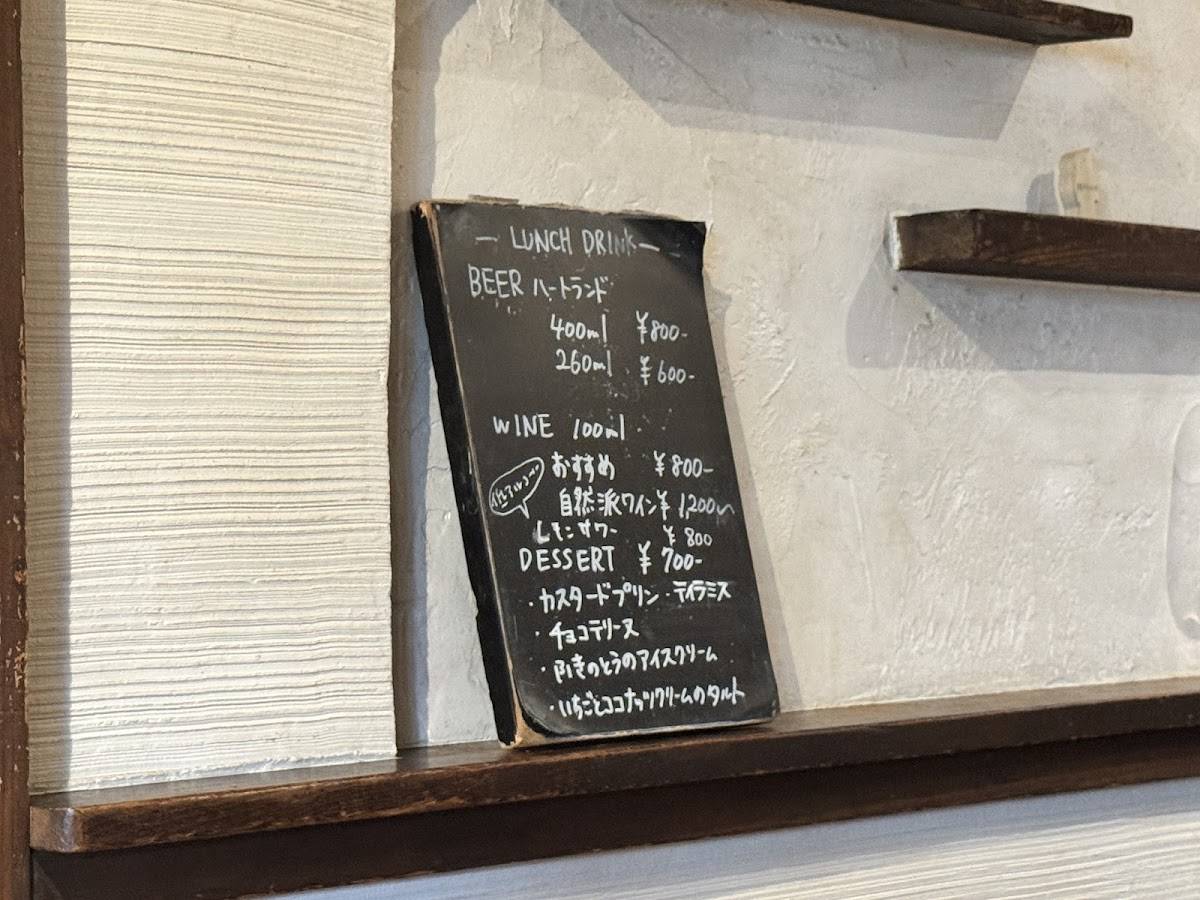 — LUNCH DRINK —
BEER ハートランド
400ml ¥800-
260ml ¥600-
WINE 100ml
おすすめ ¥800-
自然派ワイン ¥1,200〜
レモンサワー ¥800
DESSERT ¥700-
・カスタードプリン ・ティラミス
・チョコテリーヌ
・ふきのとうのアイスクリーム
・いちごとココナッツクリームのタルト